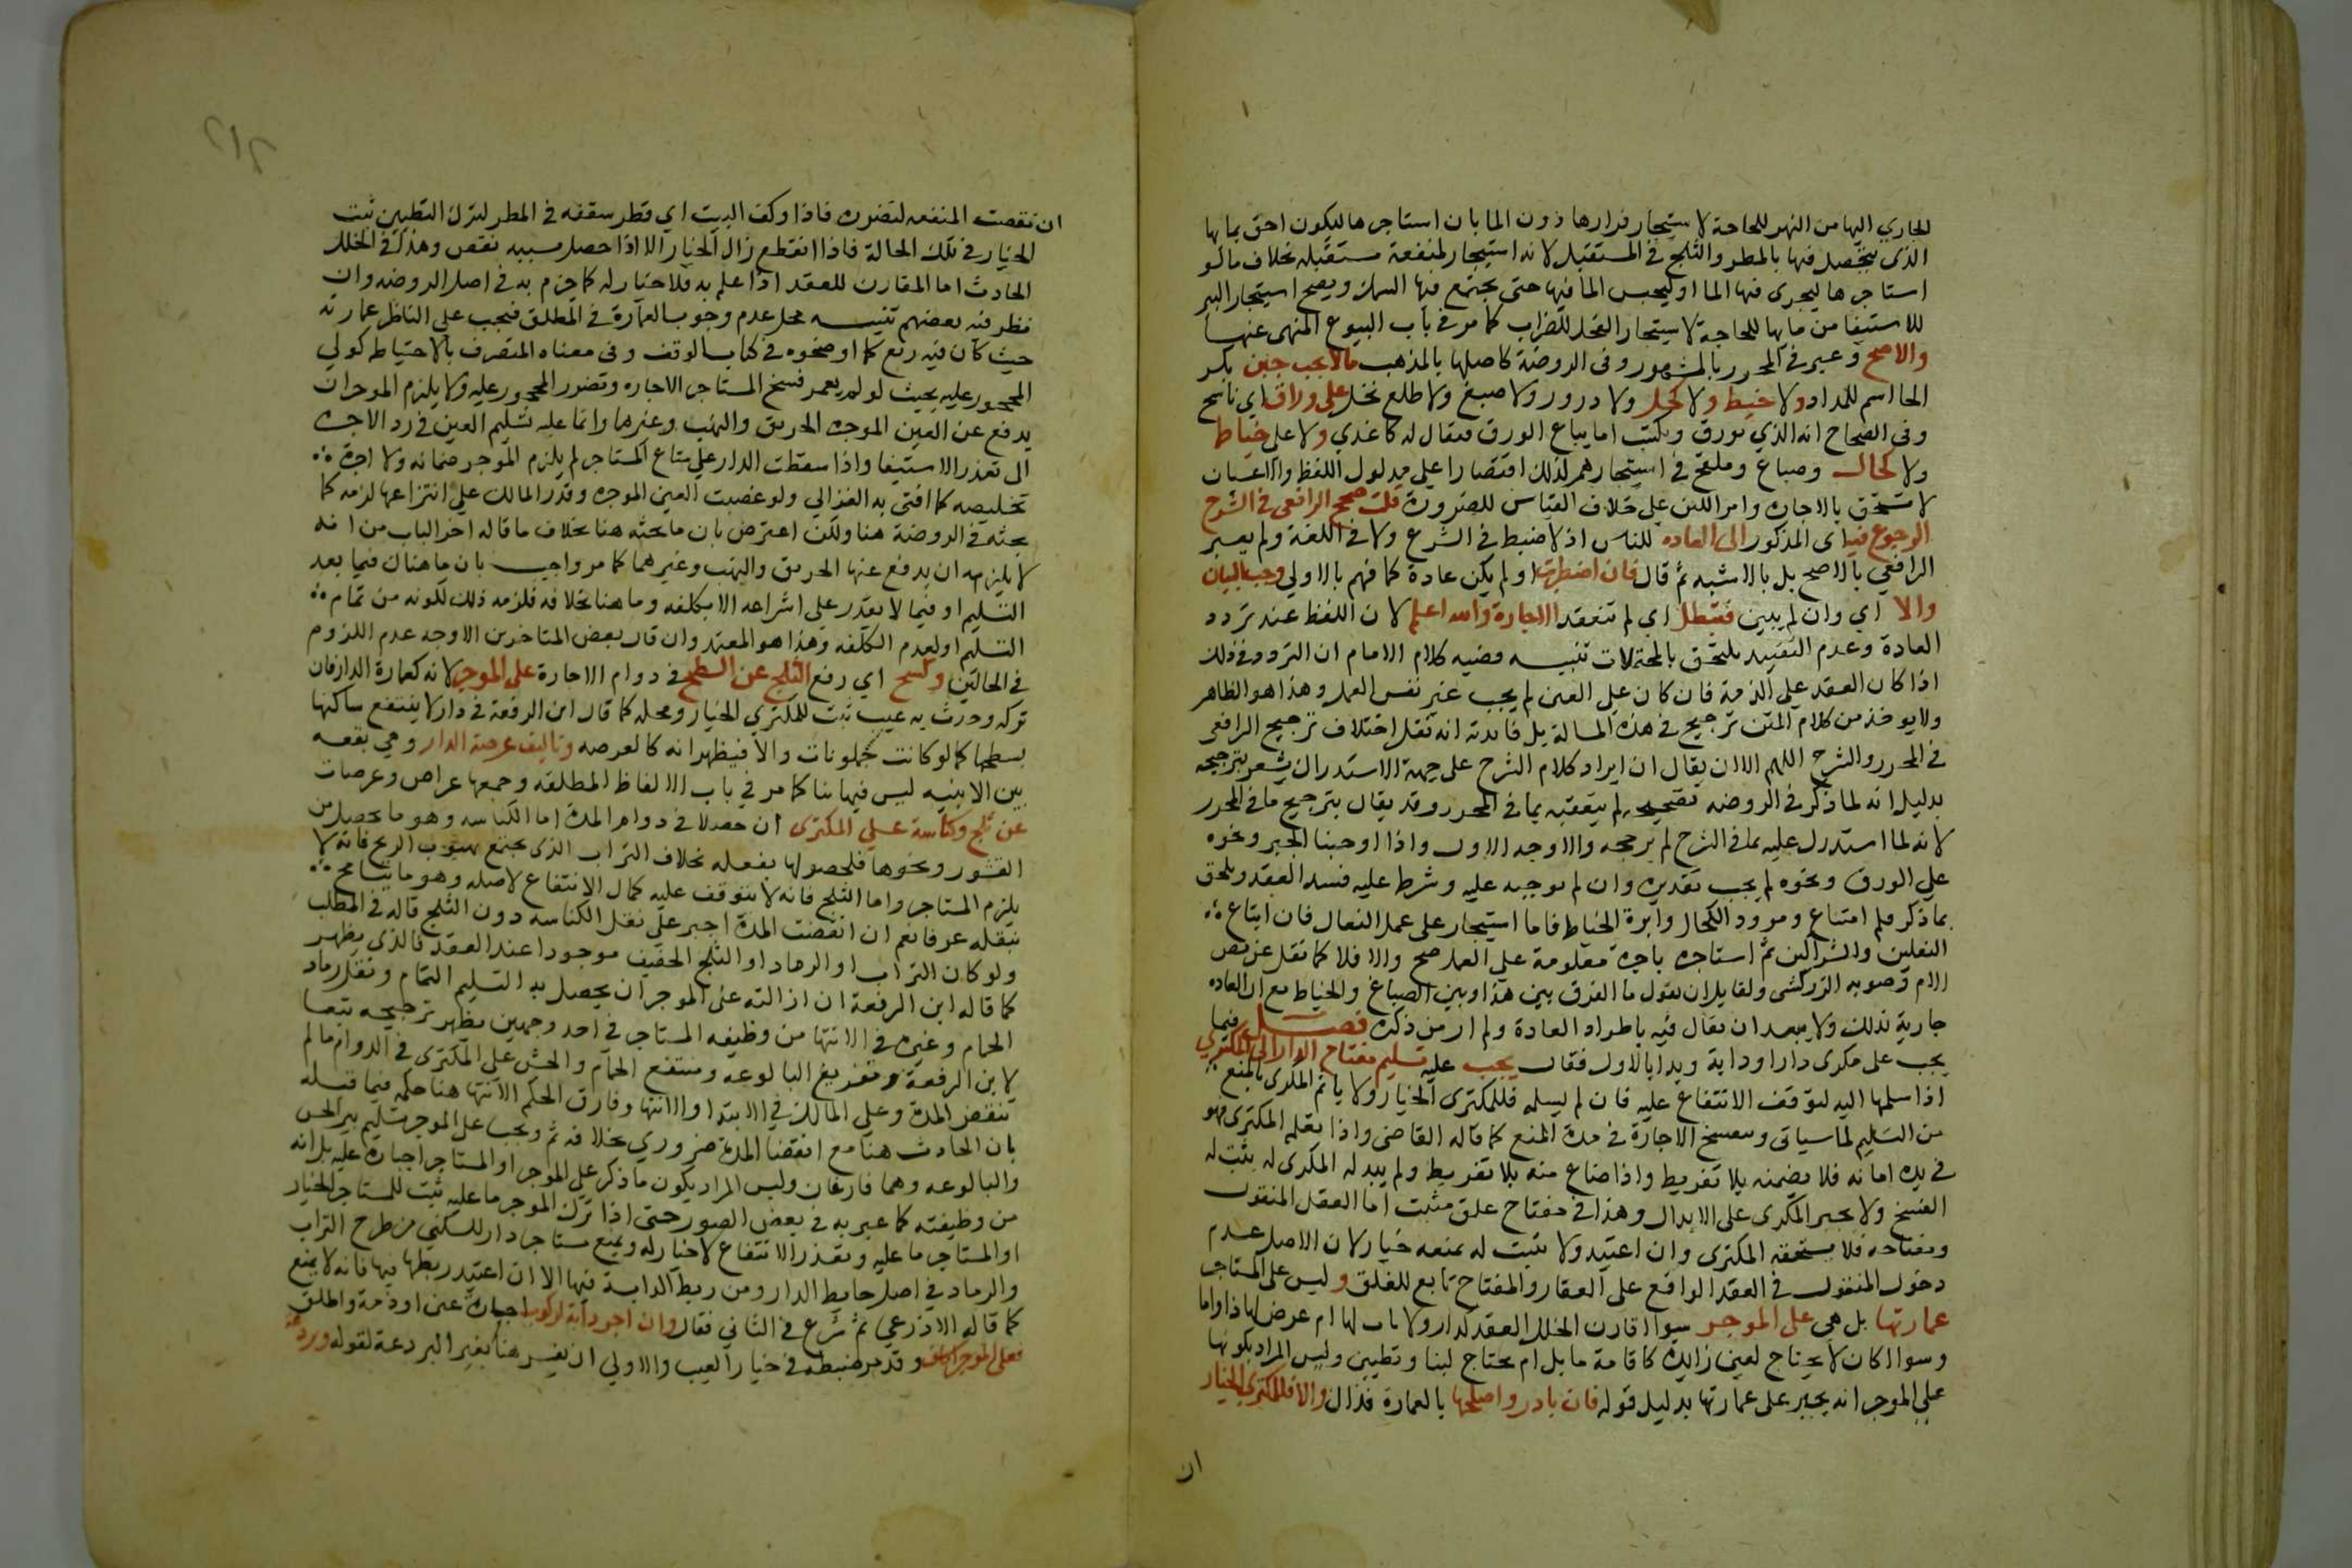 الجاري اليها من النهر للحاجة لا ستيجار قرارها دون الما بان استاجرها ليكون احق بمائها
الذي يتحصل فيها بالمطر والثلج في المستقبل لانه استيجار لمنفعة مستقبله بخلاف ما لو
استاجرها ليجري فيها الما او ليحبس الما فيها حتى يجتمع فيها السمك ويصح استيجار البير
للاستيفا من مايها للحاجة لا ستيجار الفحل للضراب كما مر في باب البيوع المنهى عنها
والاصح وعبر في المحرر بالمشهور وفى الروضة كاصلها بالمذهب ما لا يجب حبر بكسر
الحا اسم للمداد ولا خيط ولا كحل ولا درور ولا صبغ ولا طلع نخل على وراق اي ناسخ
وفى الصحاح انه الذي يورق ويكتب اما يباع الورق فيقال له كاغدي ولا على خياط
ولا كحال وصباغ وملقح في استيجارهم لذلك اقتصارا على مدلول اللفظ والاعيان
لا تستحق بالاجارة وامر اللبن على خلاف القياس للضرورة قلت صحح الرافعي في الشرح
الرجوع فيه اى المذكور الى العادة للناس اذ لا ضبط في الشرع ولا في اللغة ولم يعبر
الرافعي بالاصح بل بالاشبه ثم قال فان اضطربت او لم يكن عادة كما فهم بالاولي وجب البيان
والا اي وان لم يبين فتبطل اي لم تنعقد الاجارة والله اعلم لان اللفظ عند تردد
العادة وعدم التقييد يلتحق بالمحتملات تنبيه قضيه كلام الامام ان التردد في ذلك
اذا كان العقد على الذمة فان كان على العين لم يجب غير نفس العمل وهذا هو الظاهر
ولا يوخذ من كلام المتن ترجيح في هذه المسالة بل فائدته انه نقل اختلاف ترجيح الرافعي
في المحرر والشرح اللهم الا ان يقال ان ايراد كلام الشرح على جهة الاستدراك يشعر بترجيحه
بدليل انه لما ذكر في الروضه تصحيحه لم يتعقبه بما في المحرر وقد يقال بترجيح ما في المحرر
لانه لما استدرك عليه بما في الشرح لم يرجحه والاوجه الاول واذا اوجبنا الحبر ونحوه
على الورق ونحوه لم يجب تقديره وان لم نوجبه عليه وشرط عليه فسد العقد ويلحق
بما ذكر قلم النساخ ومرود الكحال وابرة الخياط فاما استيجار على عمل النعال فان ابتاع
النعلين والشراكين ثم استاجره باجرة معلومة على العمل صح والا فلا كما نقل عن نص
الام وصوبه الزركشى ولقايل ان يقول ما الفرق بين هذا وبين الصباغ والخياط مع ان العادة
جارية بذلك ولا يبعد ان يقال فيه باطراد العادة ولم ار من ذكره فصل فيما
يجب على مكرى دار او دابة وبدا بالاول فقال يجب عليه تسليم مفتاح الدار الى المكتري
اذا سلمها اليه لتوقف الانتفاع عليه فان لم يسلمه فللمكتري الخيار ولا ياثم المكرى بالمنع
من التسليم لما سياتى وتنفسخ الاجارة في مدة المنع كما قاله القاضى واذا تعلم المكترى فهو
في يده امانه فلا يضمنه بلا تفريط واذا ضاع منه بلا تفريط ولم يبدله المكرى له يثبت له
الفسخ ولا يجبر المكرى على الابدال وهذا في مفتاح غلق مثبت اما القفل المنقول
ومفتاحه فلا يستحقه المكترى وان اعتيد ولا يثبت له بمنعه خيار لان الاصل عدم
دخول المنقول في العقد الواقع على العقار والمفتاح تابع للغلق وليس على المستاجر
عمارتها بل هي على الموجر سوا اقارن الخلل العقد كدار ولا باب لها ام عرض لها دواما
وسوا اكان لا يحتاج لعين زايدة كاقامة مايل ام يحتاج لبنا وتطيين وليس المراد بكونها
على الموجر انه يجبر على عمارتها بدليل قوله فان بادر واصلحها بالعمارة فذاك والا فللمكتري الخيار
ان
ان نقصت المنفعه لتضرره فاذا وكف البيت اي قطر سقفه في المطر لترك التطيين ثبت
الخيار في تلك الحالة فاذا انقطع زال الخيار الا اذا حصل بسببه نقص وهذا في الخلل
الحادث اما المقارن للعقد اذا علم به فلا خيار له كما جزم به في اصل الروضه وان
نظر فيه بعضهم تنبيه محل عدم وجوب العمارة في المطلق فيجب على الناظر عمارته
حيث كان فيه ريع كما اوضحوه في كتاب الوقف وفى معناه المتصرف بالاحتياط كولي
المحجور عليه بحيث لو لم يعمر فسخ المستاجر الاجاره وتضرر المحجور عليه ولا يلزم الموجر ان
يدفع عن العين الموجره الحريق والنهب وغيرها وانما عليه تسليم العين في رد الاجره
ان تعذر الاستيفا واذا سقطت الدار على متاع المستاجر لم يلزم الموجر ضمانه ولا اجرة
تخليصه كما افتى به الغزالي ولو غصبت العين الموجره وقدر المالك على انتزاعها لزمه كما
بحثه في الروضة هنا ولكن اعترض بان ما بحثه هنا بخلاف ما قاله اخر الباب من انه
لا يلزمه ان يدفع عنها الحريق والنهب وغيرهما كما مر واجيب بان ما هناك فيما بعد
التسليم او فيما لا يقدر على انتزاعه الا بكلفه وما هنا بخلافه فلزمه ذلك لكونه من تمام
التسليم او لعدم الكلفه وهذا هو المعتمد وان قال بعض المتاخرين الاوجه عدم اللزوم
في الحالتين وكسح اي رفع الثلج عن السطح في دوام الاجارة على الموجر لانه كعمارة الدار فان
تركه وحدث به عيب ثبت للمكتري الخيار ومحله كما قال ابن الرفعة في دار لا ينتفع ساكنها
بسطحها كما لو كانت جملونات والا فيظهر انه كالعرصه وتاليف عرصة الدار وهي بقعه
بين الابنيه ليس فيها بنا كما مر في باب الالفاظ المطلقه وجمعها عراص وعرصات
عن ثلج وكناسة على المكترى ان حصلا في دوام المدة اما الكناسه وهو ما يحصل من
القشور ونحوها فلحصولها بفعله بخلاف التراب الذى يجتمع بهبوب الريح فانه لا
يلزم المستاجر واما الثلج فانه لا يتوقف عليه كمال الانتفاع لاصله وهو ما يتسامح
بنقله عرفا نعم ان انقضت المدة اجبر على نقل الكناسه دون الثلج قاله في المطلب
ولو كان التراب او الرماد او الثلج الخفيف موجودا عند العقد فالذي يظهر
كما قاله ابن الرفعة ان ازالته على الموجر ان يحصل به التسليم التمام ونقل رماد
الحمام وغيره في الانتها من وظيفه المستاجر في احد وجهين يظهر ترجيحه تبعا
لابن الرفعة وتفريغ البالوعه ومنتقع الحمام والحش على المكترى في الدوام ما لم
تنقض المدة وعلى المالك في الابتدا والانتها وفارق الحكم الانتها هنا حكمه فيما قبله
بان الحادث هنا مع انقضا المدة ضروري بخلافه ثم ويجب على الموجر تسليم بير الحش
والبالوعه وهما فارغان وليس المراد بكون ما ذكر على الموجر او المستاجر اجباره عليه بل انه
من وظيفته كما عبر به في بعض الصور حتى اذا ترك الموجر ما عليه ثبت للمستاجر الخيار
او المستاجر ما عليه وتعذر الانتفاع لا خيار له ويمنع مستاجر دار للسكنى من طرح التراب
والرماد في اصل حايط الدار ومن ربط الدابة فيها الا ان اعتيد ربطها فيها فانه لا يمنع
كما قاله الاذرعي ثم شرع في الثاني فقال وان اجر دابة لركوب اجارة عين او ذمة واطلق
فعلى الموجر اكاف وقد مر ضبطه في خيار العيب والاولي ان يفسر هنا بغير البردعة لقوله وبردعة